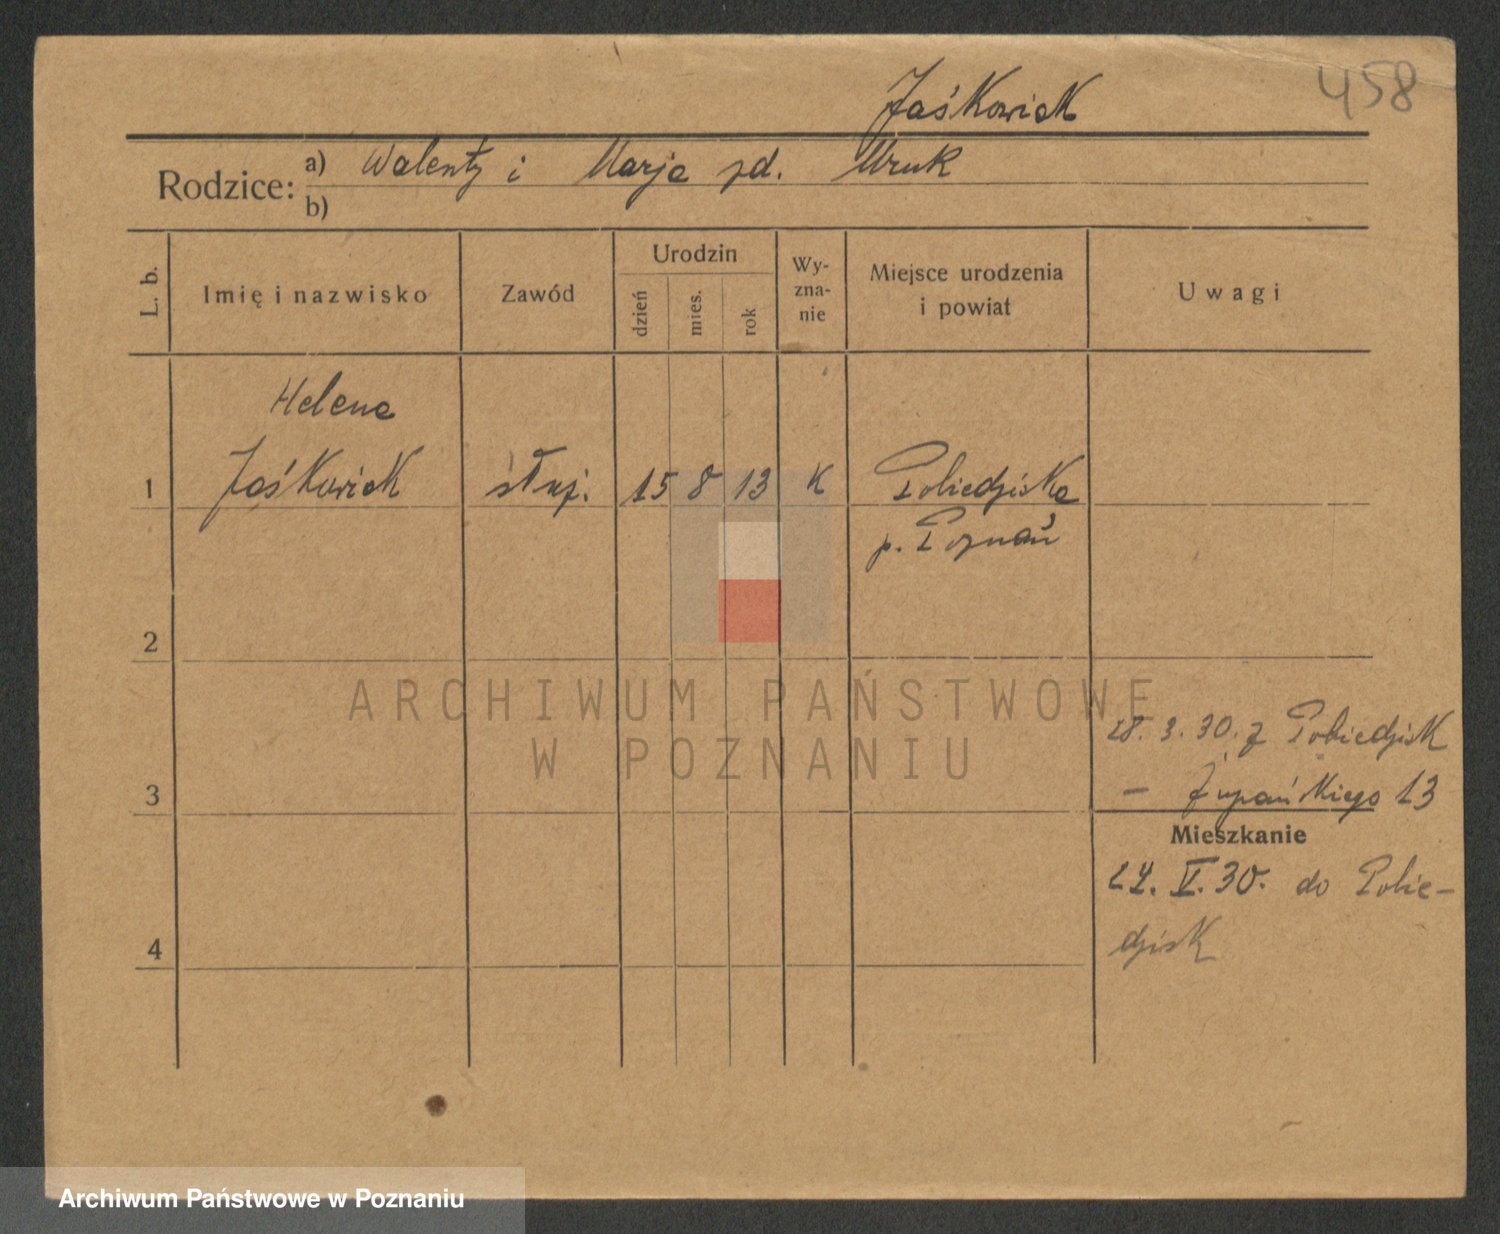 458
Jaśkowiak
Rodzice: a) Walenty i Marja zd. Mruk
b)
L. b. Imię i nazwisko Zawód Urodzin dzień mies. rok Wyznanie Miejsce urodzenia i powiat Uwagi
Helena
1 Jaśkowiak służ. 15 8 13 K Pobiedziska
p. Poznań
2
ARCHIWUM PAŃSTWOWE
W POZNANIU
28. 3. 30. z Pobiedzisk
3 – Żupańskiego 13
Mieszkanie
24. V. 30. do Pobie-
4 dzisk
Archiwum Państwowe w Poznaniu